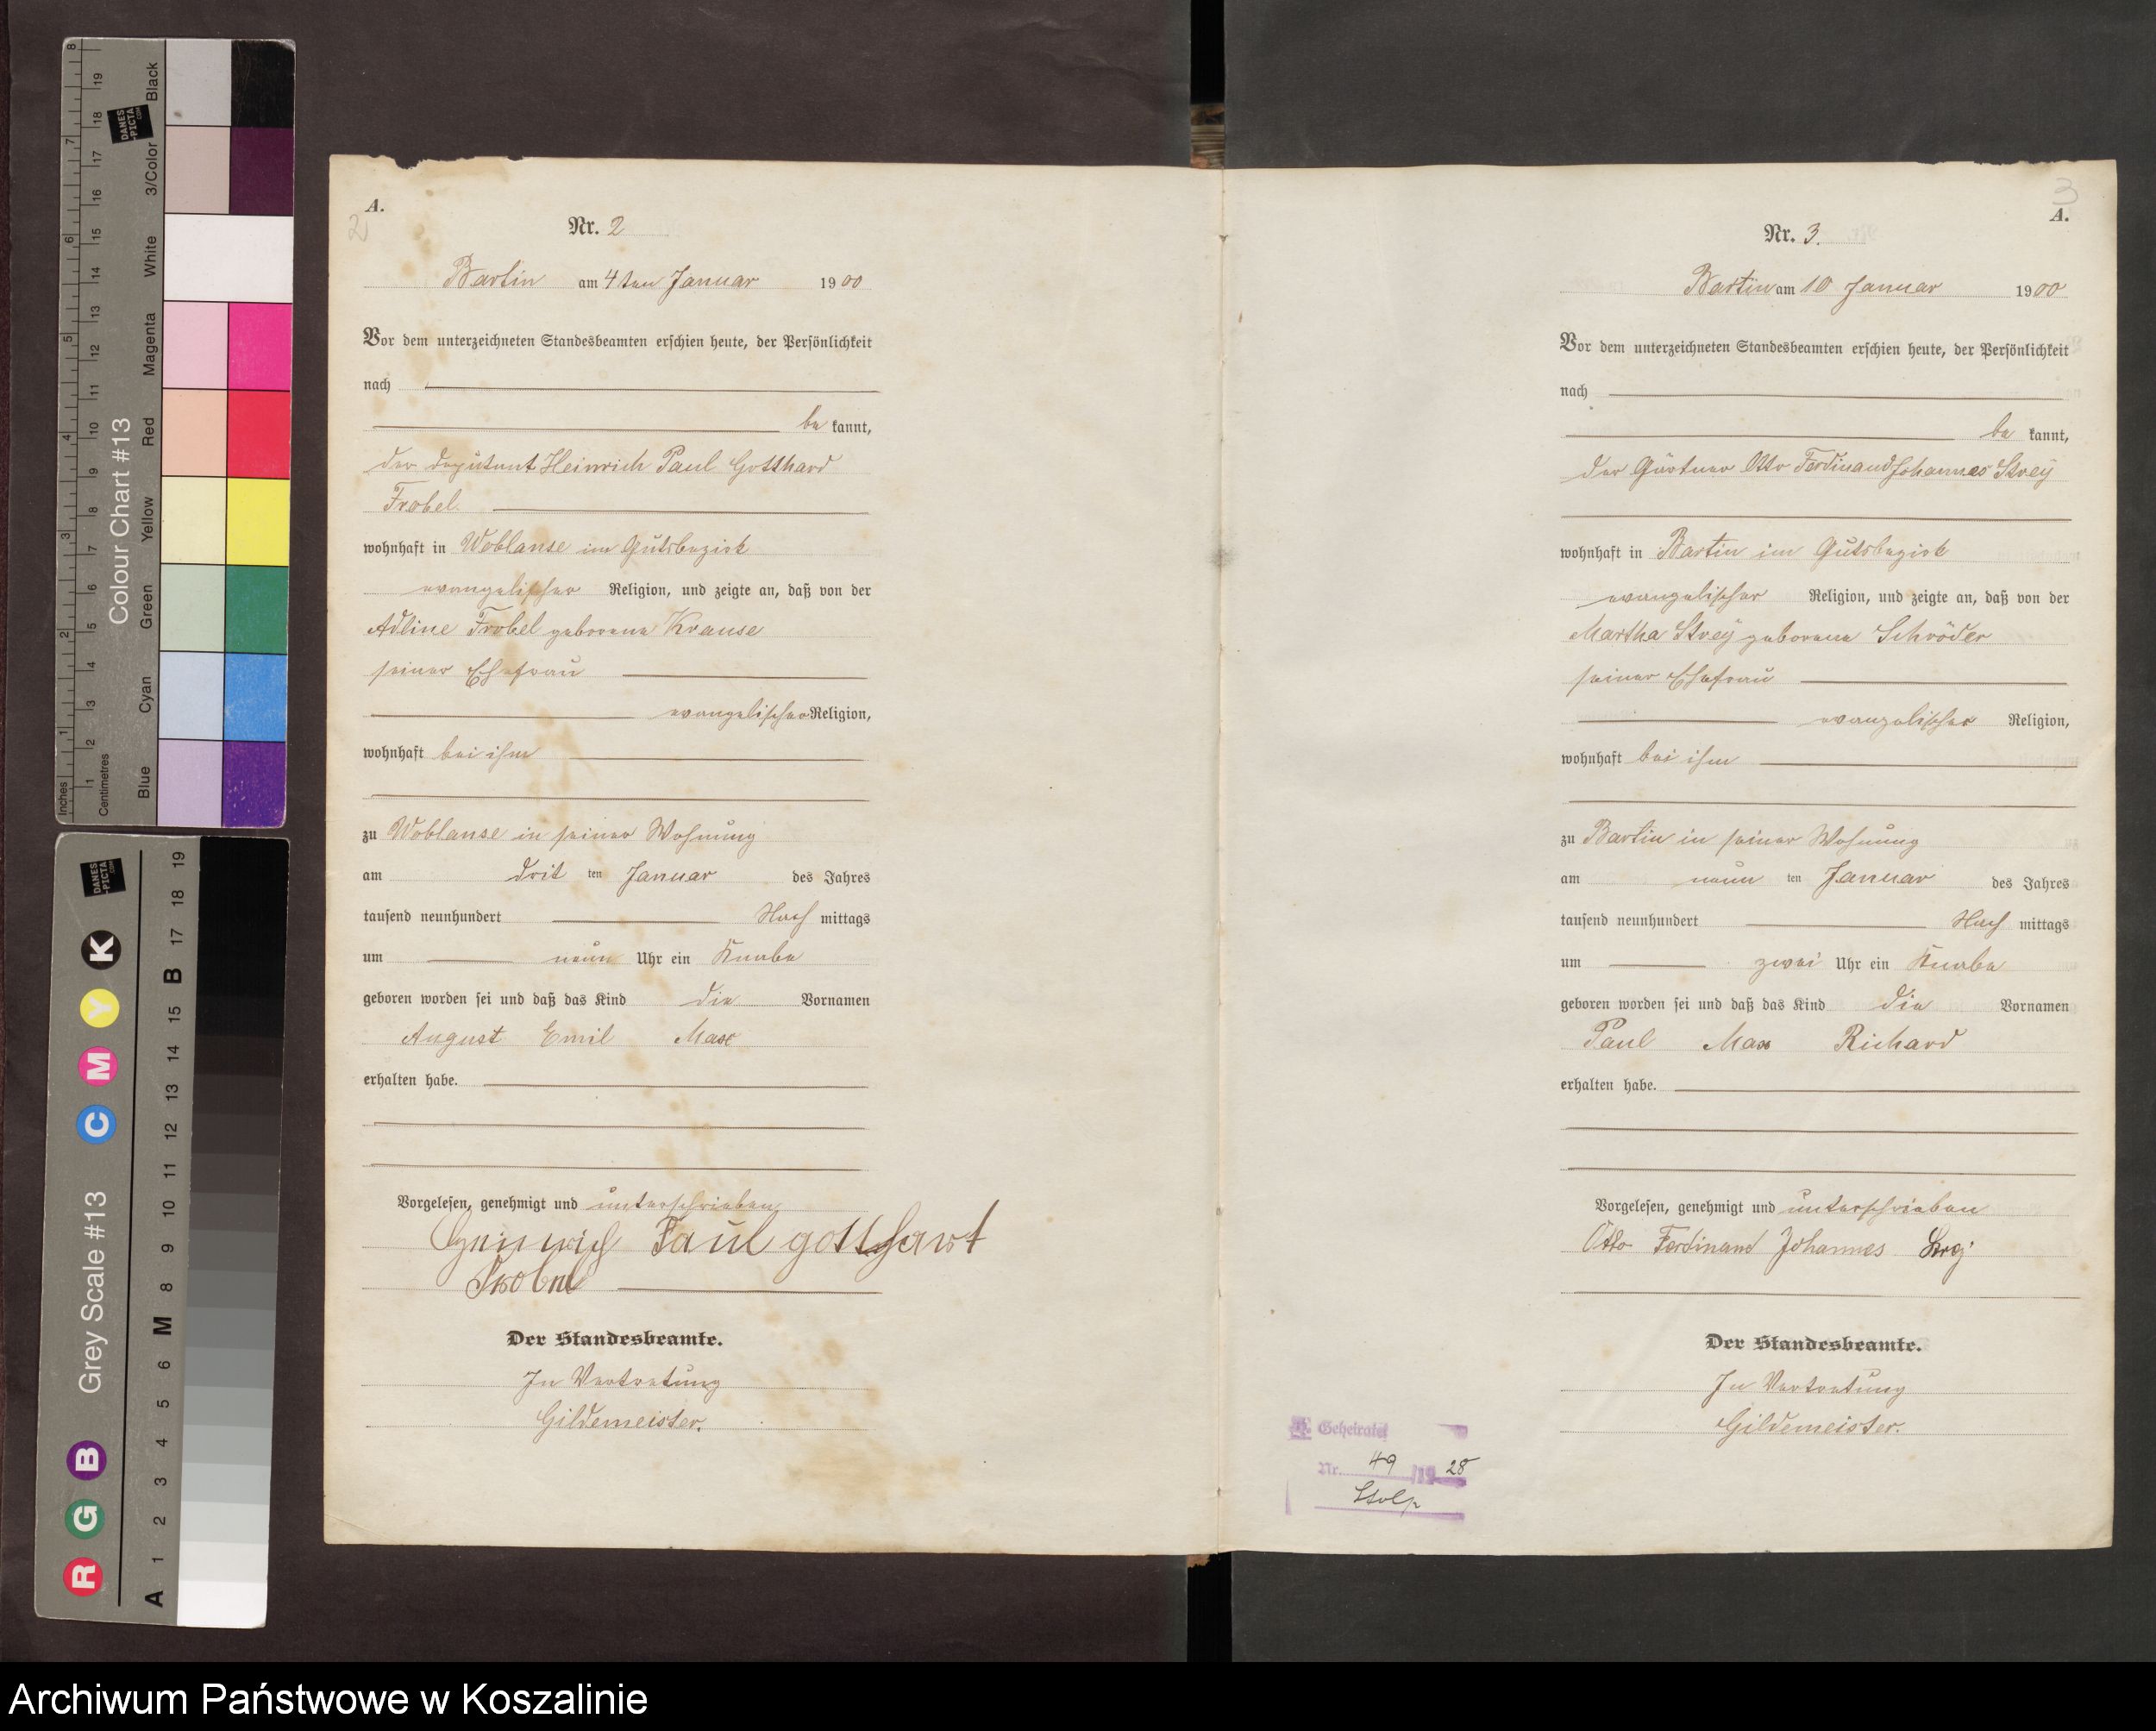 A.
2
Nr. 2
Bartin am 4ten Januar 1900
Vor dem unterzeichneten Standesbeamten erschien heute, der Persönlichkeit
nach
be kannt,
der Deputant Heinrich Paul Gotthard
Frobel.
wohnhaft in Woblanse im Gutsbezirk
evangelischer Religion, und zeigte an, daß von der
Adline Frobel geborene Krause
seiner Ehefrau
evangelischer Religion,
wohnhaft bei ihm
zu Woblanse in seiner Wohnung
am drit ten Januar des Jahres
tausend neunhundert Nach mittags
um neun Uhr ein Knabe
geboren worden sei und daß das Kind die Vornamen
August Emil Max
erhalten habe.
Vorgelesen, genehmigt und unterschrieben
Heinrich Paul gotthart
Frobel
Der Standesbeamte.
In Vertretung
Gildemeister.
3
A.
Nr. 3.
Bartin am 10 Januar 1900
Vor dem unterzeichneten Standesbeamten erschien heute, der Persönlichkeit
nach
be kannt,
der Gärtner Otto Ferdinand Johannes Streÿ
wohnhaft in Bartin im Gutsbezirk
evangelischer Religion, und zeigte an, daß von der
Martha Streÿ geborene Schröder
seiner Ehefrau
evangelischer Religion,
wohnhaft bei ihm
zu Bartin in seiner Wohnung
am neun ten Januar des Jahres
tausend neunhundert Nach mittags
um zwei Uhr ein Knabe
geboren worden sei und daß das Kind die Vornamen
Paul Max Richard
erhalten habe.
Vorgelesen, genehmigt und unterschrieben
Otto Ferdinand Johannes Strey
Der Standesbeamte.
In Vertretung
Gildemeister.
Geheiratet
Nr. 49 /19 28
Stolp
Colour Chart #13
Blue Cyan Green Yellow Red Magenta White 3/Color Black
Inches 1 2 3 4 5 6 7 8
Centimetres 1 2 3 4 5 6 7 8 9 10 11 12 13 14 15 16 17 18 19
DANES
-PICTA
.COM
Grey Scale #13
R G B C M Y K
A 1 2 3 4 5 6 M 8 9 10 11 12 13 14 15 B 17 18 19
DANES
-PICTA
.COM
Archiwum Państwowe w Koszalinie